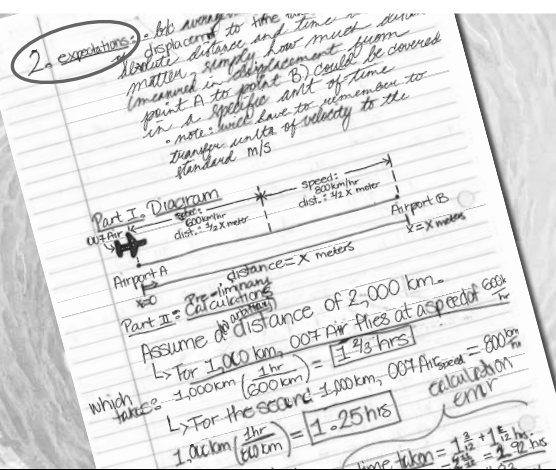 2. expectations:
displacement to time
absolute distance and time
matter, simply how much
(measured in displacement from
point A to point B) could be covered
in a specific amt of time
• note: will have to remember to
transfer units of velocity to the
standard m/s
Part I: Diagram
007 Air
speed:
600km/hr
dist.: 1/2 X meter
speed:
800km/hr
dist.: 1/2 X meter
Airport A
x=0
Airport B
x = X meters
distance = X meters
Part II: Preliminary
Calculations
(arbitrary)
Assume a distance of 2,000 km.
↳ For 1,000 km, 007 Air flies at a speed of 600k/hr
which
takes: 1,000km (1hr/600km) = 1 2/3 hrs
↳ For the second 1,000km, 007 Air speed = 800km/hr
1,000km (1hr/800km) = 1.25 hrs
calculation
error
time taken =